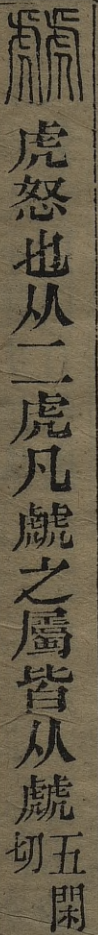 虤
虎怒也从二虎凡虤之屬皆从虤五閑切